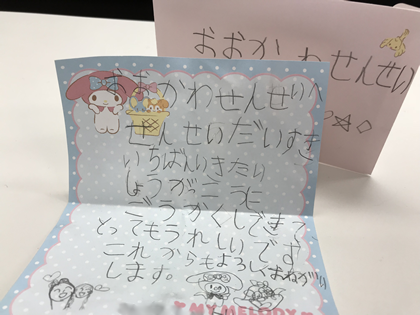 おおかわせんせい
おおかわせんせいへ
せんせいだいすき
いちばんいきたい
しょうがっこうに
ごうかくしできて
とってもうれしいです
これからもよろしくおねがい
します。
MY MELODY